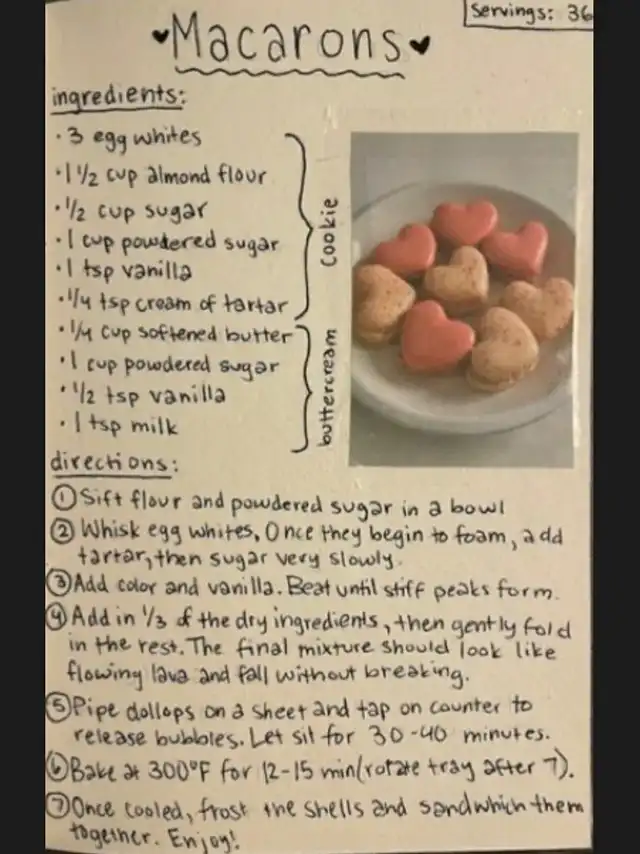 Servings: 36
♥Macarons♥
ingredients:
· 3 egg whites
· 1 1/2 cup almond flour
· 1/2 cup sugar
· 1 cup powdered sugar
· 1 tsp vanilla
· 1/4 tsp cream of tartar
Cookie
· 1/4 cup softened butter
· 1 cup powdered sugar
· 1/2 tsp vanilla
· 1 tsp milk
buttercream
directions:
① Sift flour and powdered sugar in a bowl
② Whisk egg whites. Once they begin to foam, add
tartar, then sugar very slowly.
③ Add color and vanilla. Beat until stiff peaks form.
④ Add in 1/3 of the dry ingredients, then gently fold
in the rest. The final mixture should look like
flowing lava and fall without breaking.
⑤ Pipe dollops on a sheet and tap on counter to
release bubbles. Let sit for 30-40 minutes.
⑥ Bake at 300°F for 12-15 min (rotate tray after 7).
⑦ Once cooled, frost the shells and sandwhich them
together. Enjoy!